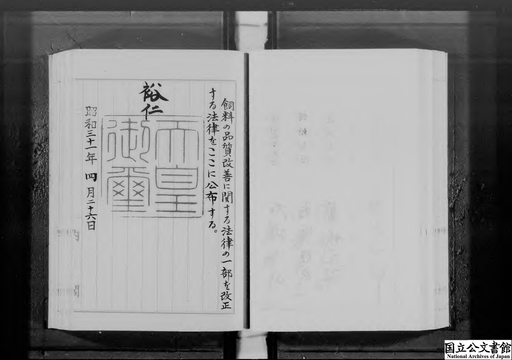 飼料の品質改善に関する法律の一部を改正
する法律をここに公布する。
裕仁
天皇
御璽
昭和三十一年四月二十六日
国立公文書館
National Archives of Japan